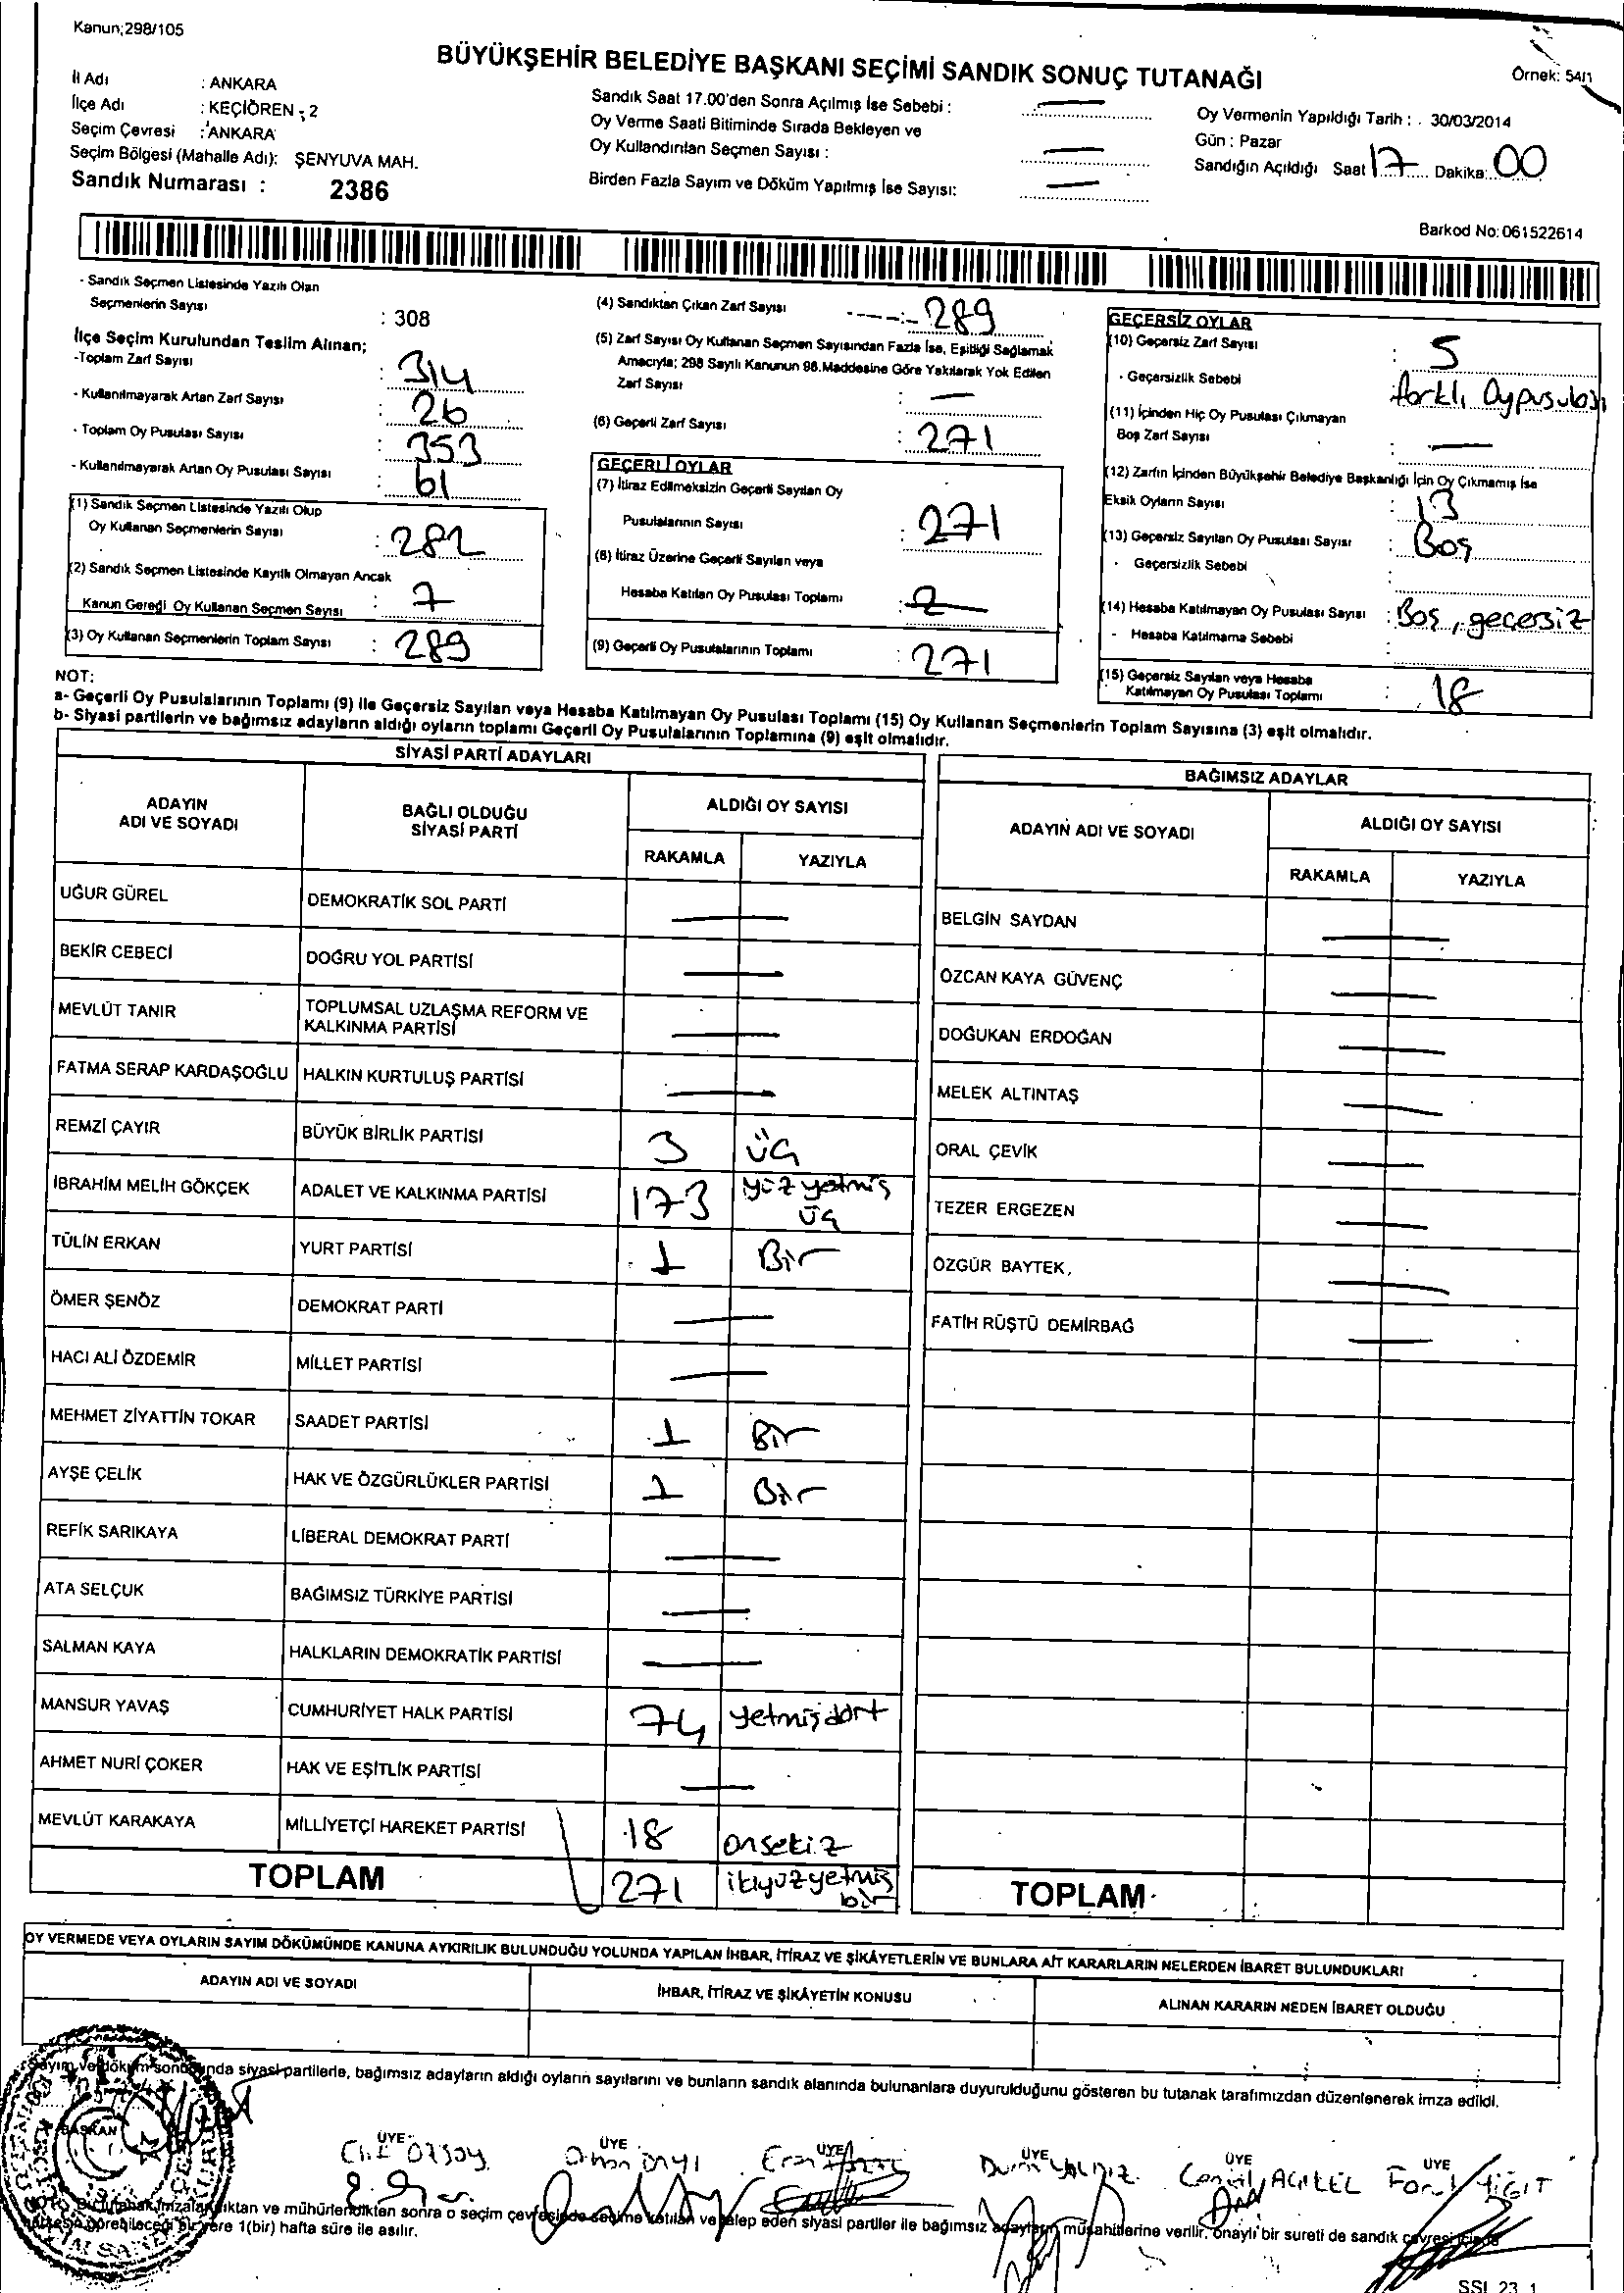 Kanun;298/105
BÜYÜKŞEHİR BELEDİYE BAŞKANI SEÇİMİ SANDIK SONUÇ TUTANAĞI
Örnek: 54/1
İl Adı : ANKARA
İlçe Adı : KEÇİÖREN - 2
Seçim Çevresi : ANKARA
Seçim Bölgesi (Mahalle Adı): ŞENYUVA MAH.
Sandık Numarası : 2386
Sandık Saat 17.00'den Sonra Açılmış İse Sebebi : —
Oy Verme Saati Bitiminde Sırada Bekleyen ve
Oy Kullandırılan Seçmen Sayısı : —
Birden Fazla Sayım ve Döküm Yapılmış İse Sayısı: —
Oy Vermenin Yapıldığı Tarih : 30/03/2014
Gün : Pazar
Sandığın Açıldığı Saat 17 Dakika: 00
Barkod No: 061522614
- Sandık Seçmen Listesinde Yazılı Olan
Seçmenlerin Sayısı : 308
İlçe Seçim Kurulundan Teslim Alınan;
-Toplam Zarf Sayısı : 314
- Kullanılmayarak Artan Zarf Sayısı : 26
- Toplam Oy Pusulası Sayısı : 353
- Kullanılmayarak Artan Oy Pusulası Sayısı : 61
(1) Sandık Seçmen Listesinde Yazılı Olup
Oy Kullanan Seçmenlerin Sayısı : 282
(2) Sandık Seçmen Listesinde Kayıtlı Olmayan Ancak
Kanun Gereği Oy Kullanan Seçmen Sayısı : 7
(3) Oy Kullanan Seçmenlerin Toplam Sayısı : 289
(4) Sandıktan Çıkan Zarf Sayısı : 289
(5) Zarf Sayısı Oy Kullanan Seçmen Sayısından Fazla İse, Eşitliği Sağlamak
Amacıyla; 298 Sayılı Kanunun 98.Maddesine Göre Yakılarak Yok Edilen
Zarf Sayısı : —
(6) Geçerli Zarf Sayısı : 271
GEÇERLİ OYLAR
(7) İtiraz Edilmeksizin Geçerli Sayılan Oy
Pusulalarının Sayısı : 271
(8) İtiraz Üzerine Geçerli Sayılan veya
Hesaba Katılan Oy Pusulası Toplamı : —
(9) Geçerli Oy Pusulalarının Toplamı : 271
GEÇERSİZ OYLAR
(10) Geçersiz Zarf Sayısı : 5
- Geçersizlik Sebebi : farklı Oypusulası
(11) İçinden Hiç Oy Pusulası Çıkmayan
Boş Zarf Sayısı : —
(12) Zarfın İçinden Büyükşehir Belediye Başkanlığı İçin Oy Çıkmamış İse
Eksik Oyların Sayısı : 13
(13) Geçersiz Sayılan Oy Pusulası Sayısı : Boş
- Geçersizlik Sebebi :
(14) Hesaba Katılmayan Oy Pusulası Sayısı : Boş, geçersiz
- Hesaba Katılmama Sebebi :
(15) Geçersiz Sayılan veya Hesaba
Katılmayan Oy Pusulası Toplamı : 18
NOT:
a- Geçerli Oy Pusulalarının Toplamı (9) ile Geçersiz Sayılan veya Hesaba Katılmayan Oy Pusulası Toplamı (15) Oy Kullanan Seçmenlerin Toplam Sayısına (3) eşit olmalıdır.
b- Siyasi partilerin ve bağımsız adayların aldığı oyların toplamı Geçerli Oy Pusulalarının Toplamına (9) eşit olmalıdır.
SİYASİ PARTİ ADAYLARI
ADAYIN ADI VE SOYADI
BAĞLI OLDUĞU SİYASİ PARTİ
ALDIĞI OY SAYISI
RAKAMLA YAZIYLA
UĞUR GÜREL DEMOKRATİK SOL PARTİ —
BEKİR CEBECİ DOĞRU YOL PARTİSİ —
MEVLÜT TANIR TOPLUMSAL UZLAŞMA REFORM VE KALKINMA PARTİSİ —
FATMA SERAP KARDAŞOĞLU HALKIN KURTULUŞ PARTİSİ —
REMZİ ÇAYIR BÜYÜK BİRLİK PARTİSİ 3 üç
İBRAHİM MELİH GÖKÇEK ADALET VE KALKINMA PARTİSİ 173 yüz yetmiş üç
TÜLİN ERKAN YURT PARTİSİ 1 Bir
ÖMER ŞENÖZ DEMOKRAT PARTİ —
HACI ALİ ÖZDEMİR MİLLET PARTİSİ —
MEHMET ZİYATTİN TOKAR SAADET PARTİSİ 1 Bir
AYŞE ÇELİK HAK VE ÖZGÜRLÜKLER PARTİSİ 1 Bir
REFİK SARIKAYA LİBERAL DEMOKRAT PARTİ —
ATA SELÇUK BAĞIMSIZ TÜRKİYE PARTİSİ —
SALMAN KAYA HALKLARIN DEMOKRATİK PARTİSİ —
MANSUR YAVAŞ CUMHURİYET HALK PARTİSİ 74 yetmişdört
AHMET NURİ ÇOKER HAK VE EŞİTLİK PARTİSİ —
MEVLÜT KARAKAYA MİLLİYETÇİ HAREKET PARTİSİ 18 onsekiz
TOPLAM 271 ikiyüzyetmiş bir
BAĞIMSIZ ADAYLAR
ADAYIN ADI VE SOYADI
ALDIĞI OY SAYISI
RAKAMLA YAZIYLA
BELGİN SAYDAN —
ÖZCAN KAYA GÜVENÇ —
DOĞUKAN ERDOĞAN —
MELEK ALTINTAŞ —
ORAL ÇEVİK —
TEZER ERGEZEN —
ÖZGÜR BAYTEK, —
FATİH RÜŞTÜ DEMİRBAĞ —
TOPLAM
OY VERMEDE VEYA OYLARIN SAYIM DÖKÜMÜNDE KANUNA AYKIRILIK BULUNDUĞU YOLUNDA YAPILAN İHBAR, İTİRAZ VE ŞİKÂYETLERİN VE BUNLARA AİT KARARLARIN NELERDEN İBARET BULUNDUKLARI
ADAYIN ADI VE SOYADI
İHBAR, İTİRAZ VE ŞİKÂYETİN KONUSU
ALINAN KARARIN NEDEN İBARET OLDUĞU
Sayım ve döküm sonucunda siyasi partilerle, bağımsız adayların aldığı oyların sayılarını ve bunların sandık alanında bulunanlara duyurulduğunu gösteren bu tutanak tarafımızdan düzenlenerek imza edildi.
BAŞKAN ÜYE ÜYE ÜYE ÜYE ÜYE ÜYE
YALNIZ AÇIKEL YİĞİT
imzalandıktan ve mühürlendikten sonra o seçim çevresinde seçime katılan ve talep eden siyasi partiler ile bağımsız adayların müşahitlerine verilir. Onaylı bir sureti de sandık çevresi
görebileceği bir yere 1(bir) hafta süre ile asılır.
SSI 23 1